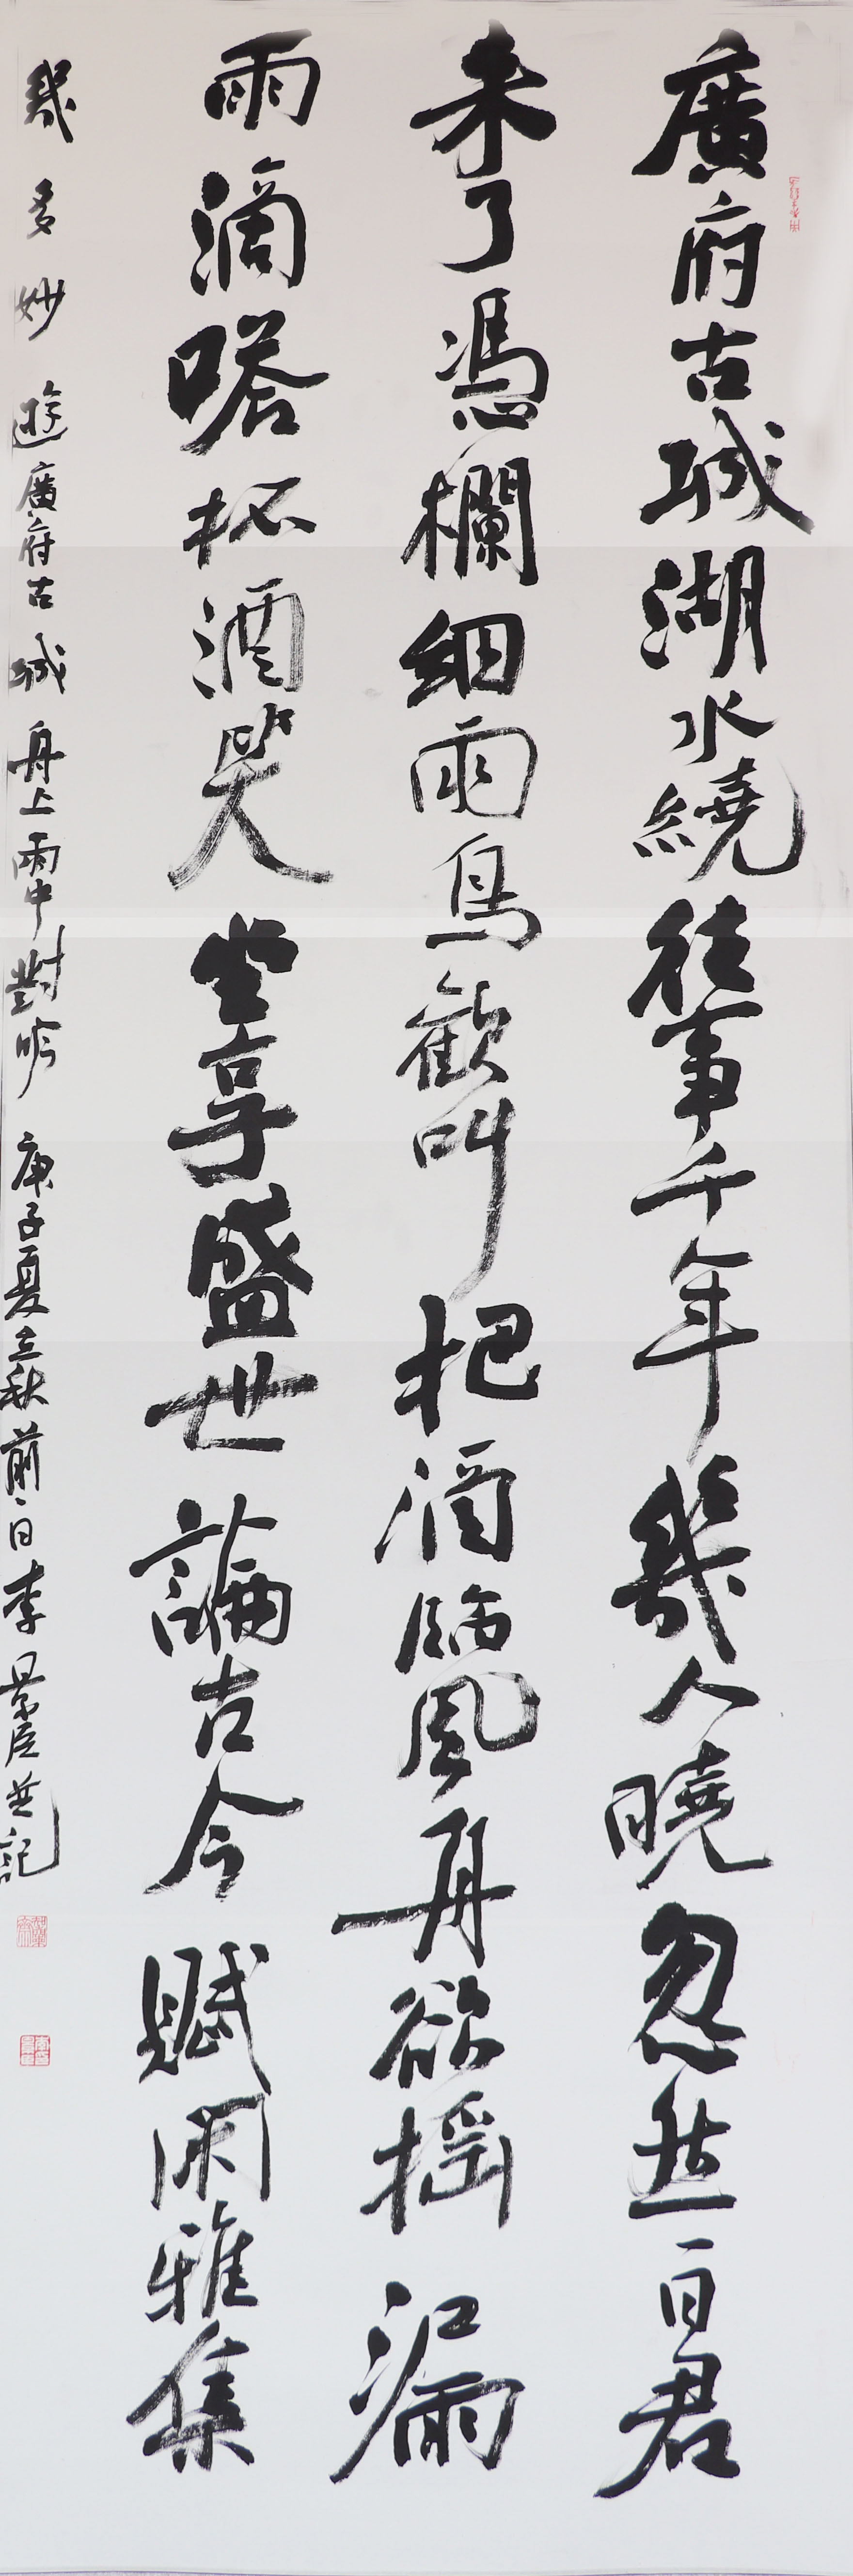 廣府古城湖水繞往事千年幾人曉忽然一日君
来了憑欄細雨鳥歡叫把酒臨風舟欲摇漏
雨滴嗒杯酒笑坐享盛世論古今賦閑雅集
幾多妙 遊廣府古城舟上雨中對吟 庚子夏立秋前一日李景臣並記